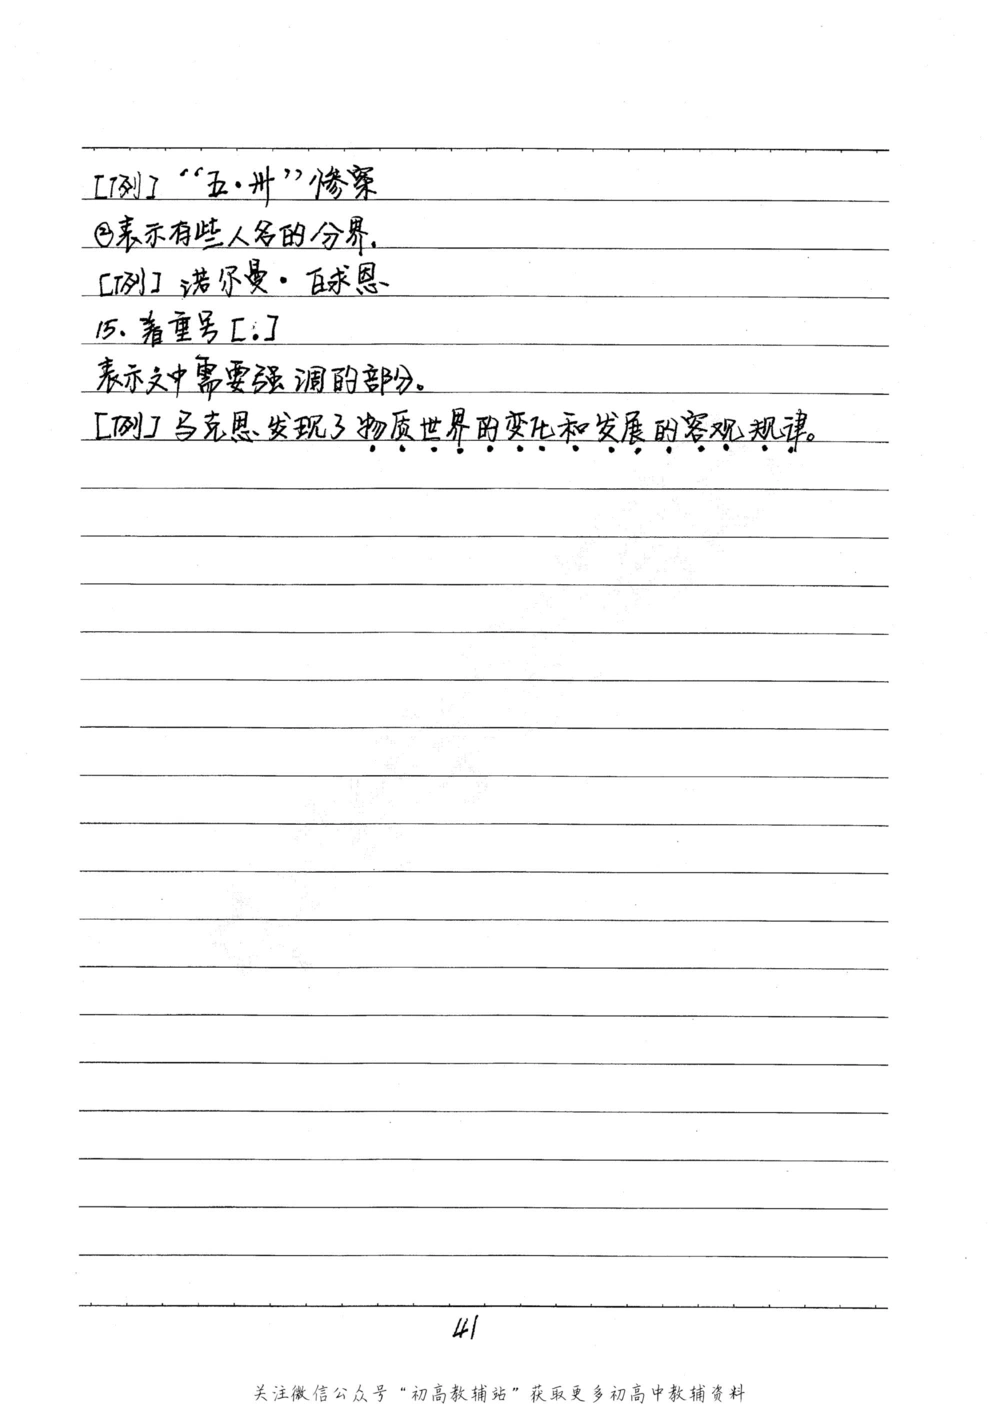 [例] “五·卅”惨案
②表示有些人名的分界.
[例] 诺尔曼·白求恩
15. 着重号 [.]
表示文中需要强调的部分。
[例] 马克思发现了物质世界的变化和发展的客观规律。
41
关注微信公众号“初高教辅站”获取更多初高中教辅资料